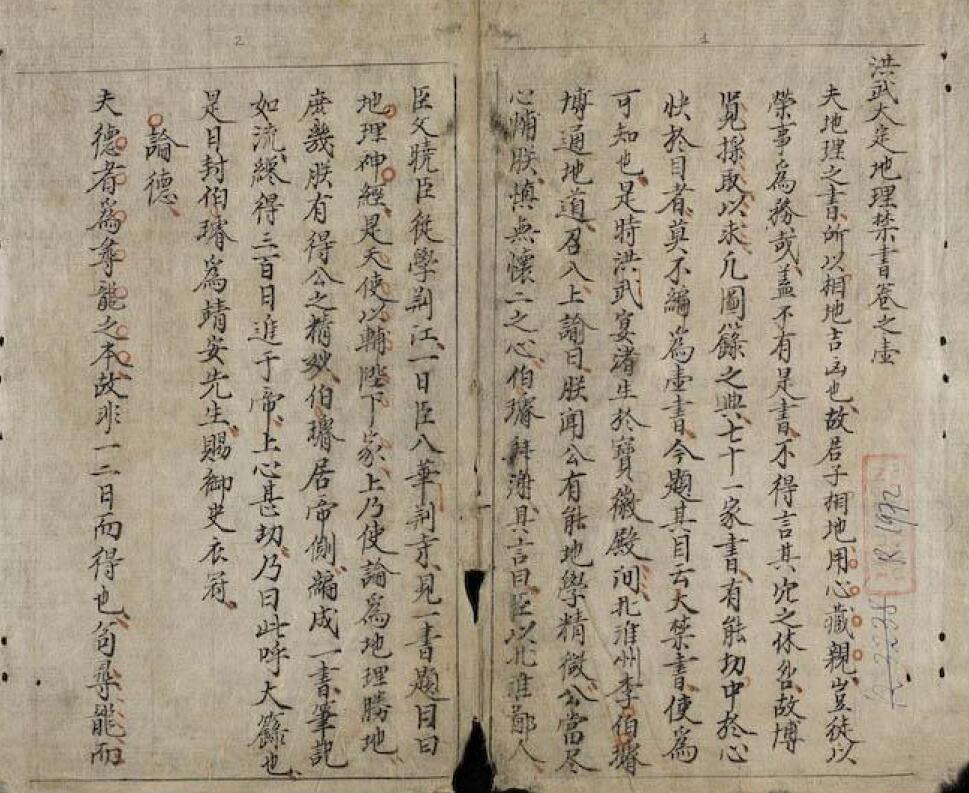 洪武大定地理禁書卷之壹
夫地理之書所以相地吉凶也故居子相地用心藏親豈徒以
榮事爲務哉盖不有是書不得言其穴之休咎故博
覓採取以求凡圖籙之典七十一家書有能切中於心
快於目者莫不編爲壹書今題其目云大禁書使爲
可知也是時洪武宴渚生於寶徽殿洞北淮州李伯璿
博通地道召入上諭曰朕聞公有能地學精徵公當尽
心輔朕慎無懷二之心伯璿拜謝具言曰臣以北淮鄭人
臣父曉臣従學荆江一日臣入華荆寺見一書題目曰
地理神經是天使以輔陛下家上乃使論爲地理勝地
庻幾朕有得公之精妙伯璿居帝側編成一書筆記
如流纔得三百日進于帝上心甚切乃曰此呼大籙也
是日封伯璿爲靖安先生賜御史衣冠
論德
夫德者爲尋龍之本故非一二日而得也苟尋龍而
1
2